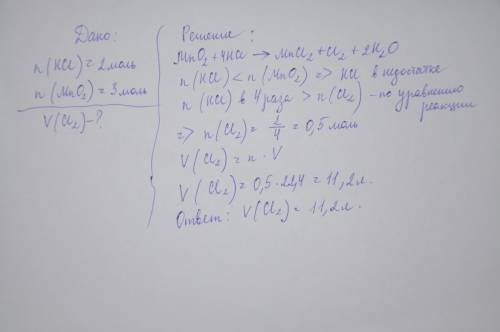 Дано:
n (HCl) = 2 моль
n (MnO₂) = 3 моль
V(Cl₂) - ?
Решение:
MnO₂ + 4HCl → MnCl₂ + Cl₂ + 2H₂O
n (HCl) < n (MnO₂) => HCl в недостатке
n (HCl) в 4 раза > n (Cl₂) - по уравнению
реакции
=> n(Cl₂) = 2/4 = 0,5 моль
V(Cl₂) = n · V
V(Cl₂) = 0,5 · 22,4 = 11,2 л.
Ответ: V(Cl₂) = 11,2 л.